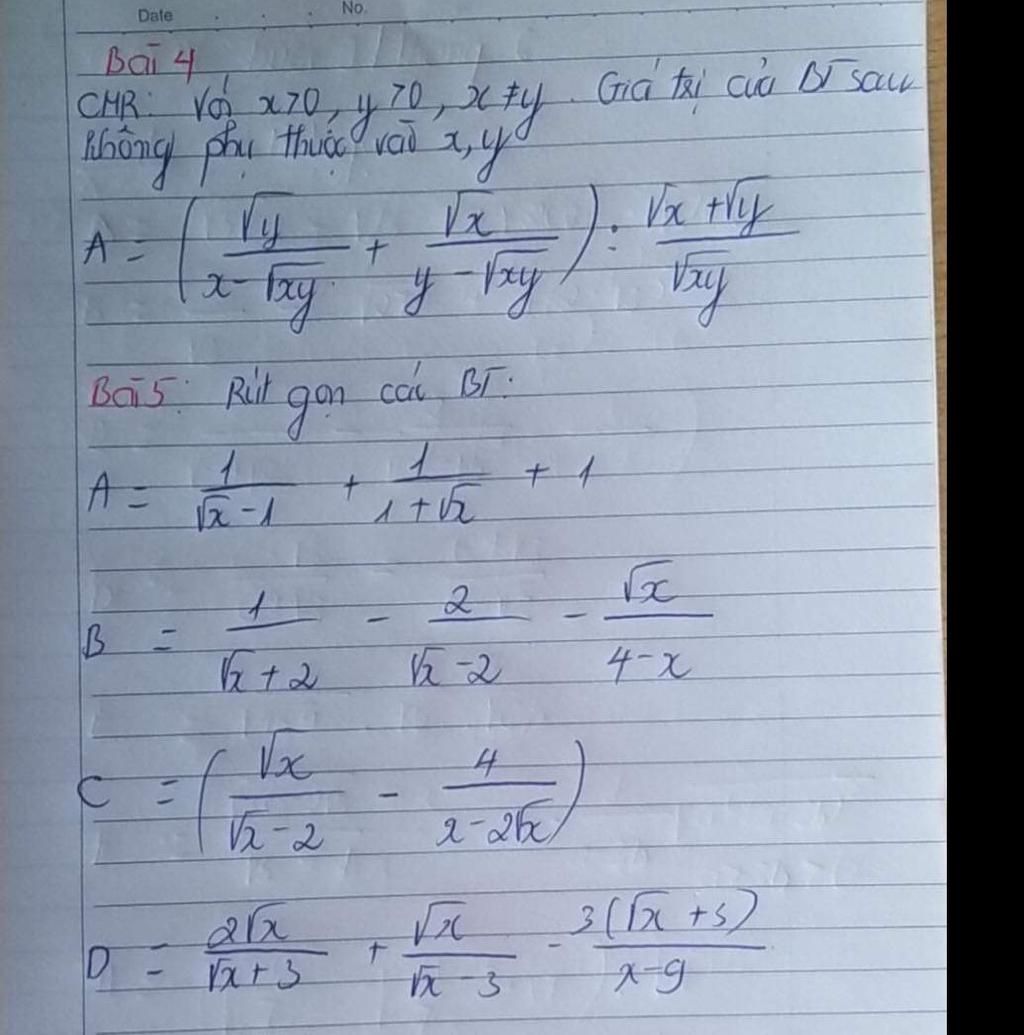 Date . . . No.
Bài 4
CMR: Với x>0, y>0, x≠y. Giá trị của BT sau
không phụ thuộc vào x,y
A = (√y/(x-√xy) + √x/(y-√xy)) : (√x+√y)/√xy
Bài 5: Rút gọn các BT:
A = 1/(√x-1) + 1/(1+√x) + 1
B = 1/(√x+2) - 2/(√x-2) - √x/(4-x)
C = (√x/(√x-2) - 4/(x-2√x))
D = 2√x/(√x+3) + √x/(√x-3) - 3(√x+3)/(x-9)